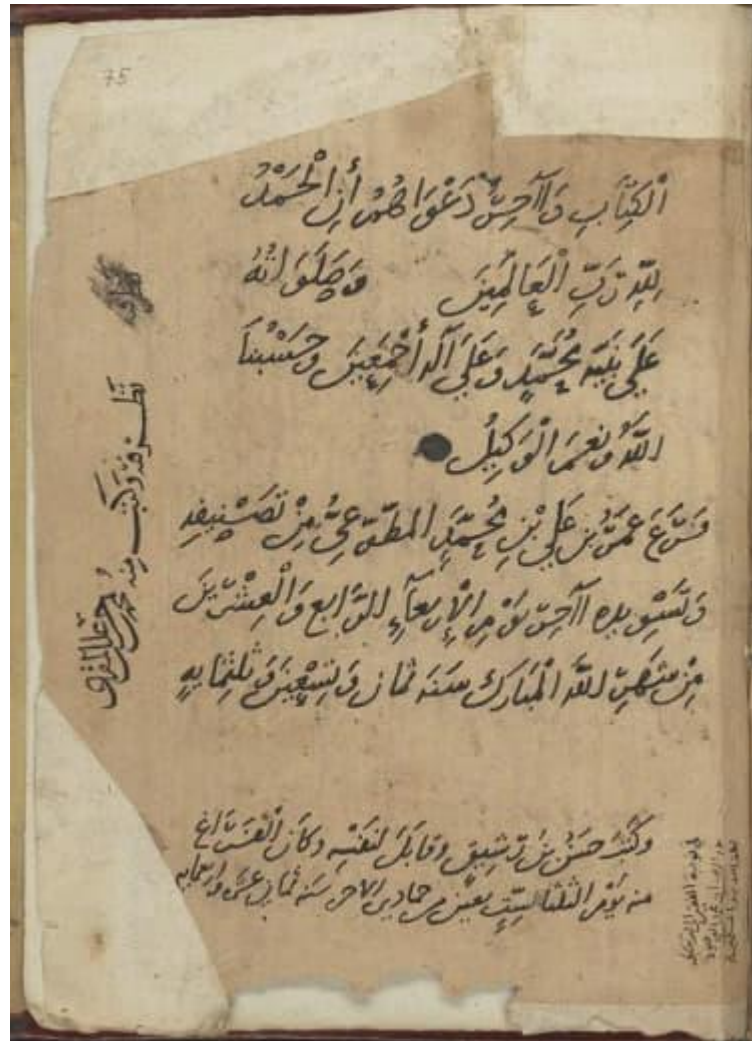 75
الْكِتَابِ وَآخِرُ دَعْوَاهُمْ أَنِ الْحَمْدُ
لِلَّهِ رَبِّ الْعَالَمِينَ وَصَلَوَاتُهُ
عَلَى نَبِيِّهِ مُحَمَّدٍ وَعَلَى آلِهِ أَجْمَعِينَ وَحَسْبُنَا
اللَّهُ وَنِعْمَ الْوَكِيلُ
فَرَغَ عُمَرُ بْنُ عَلِيِّ بْنِ مُحَمَّدٍ المطوعِيُّ مِنْ تَصْنِيفِهِ
وَتَسْوِيدِهِ آخِرَ يَوْمِ الْأَرْبَعَاءِ الرَّابِعِ وَالْعِشْرِينَ
مِنْ شَهْرِ اللَّهِ الْمُبَارَكِ سَنَةَ ثَمَانٍ وَتِسْعِينَ وَثَلَثِمِائَةٍ
وَكَتَبَهُ حَسَنُ بْنُ رَشِيقٍ وَقَابَلَ لِنَفْسِهِ وَكَانَ الْفَرَاغُ
مِنْهُ يَوْمَ الثُّلَثَا لِسِتٍّ بَقِينَ مِنْ جُمَادَى الآخِرِ سَنَةَ ثَمَانِي عَشَرَ وَأَرْبَعِمِائَةٍ
نظر فيه وكتب منه محمد بن علي